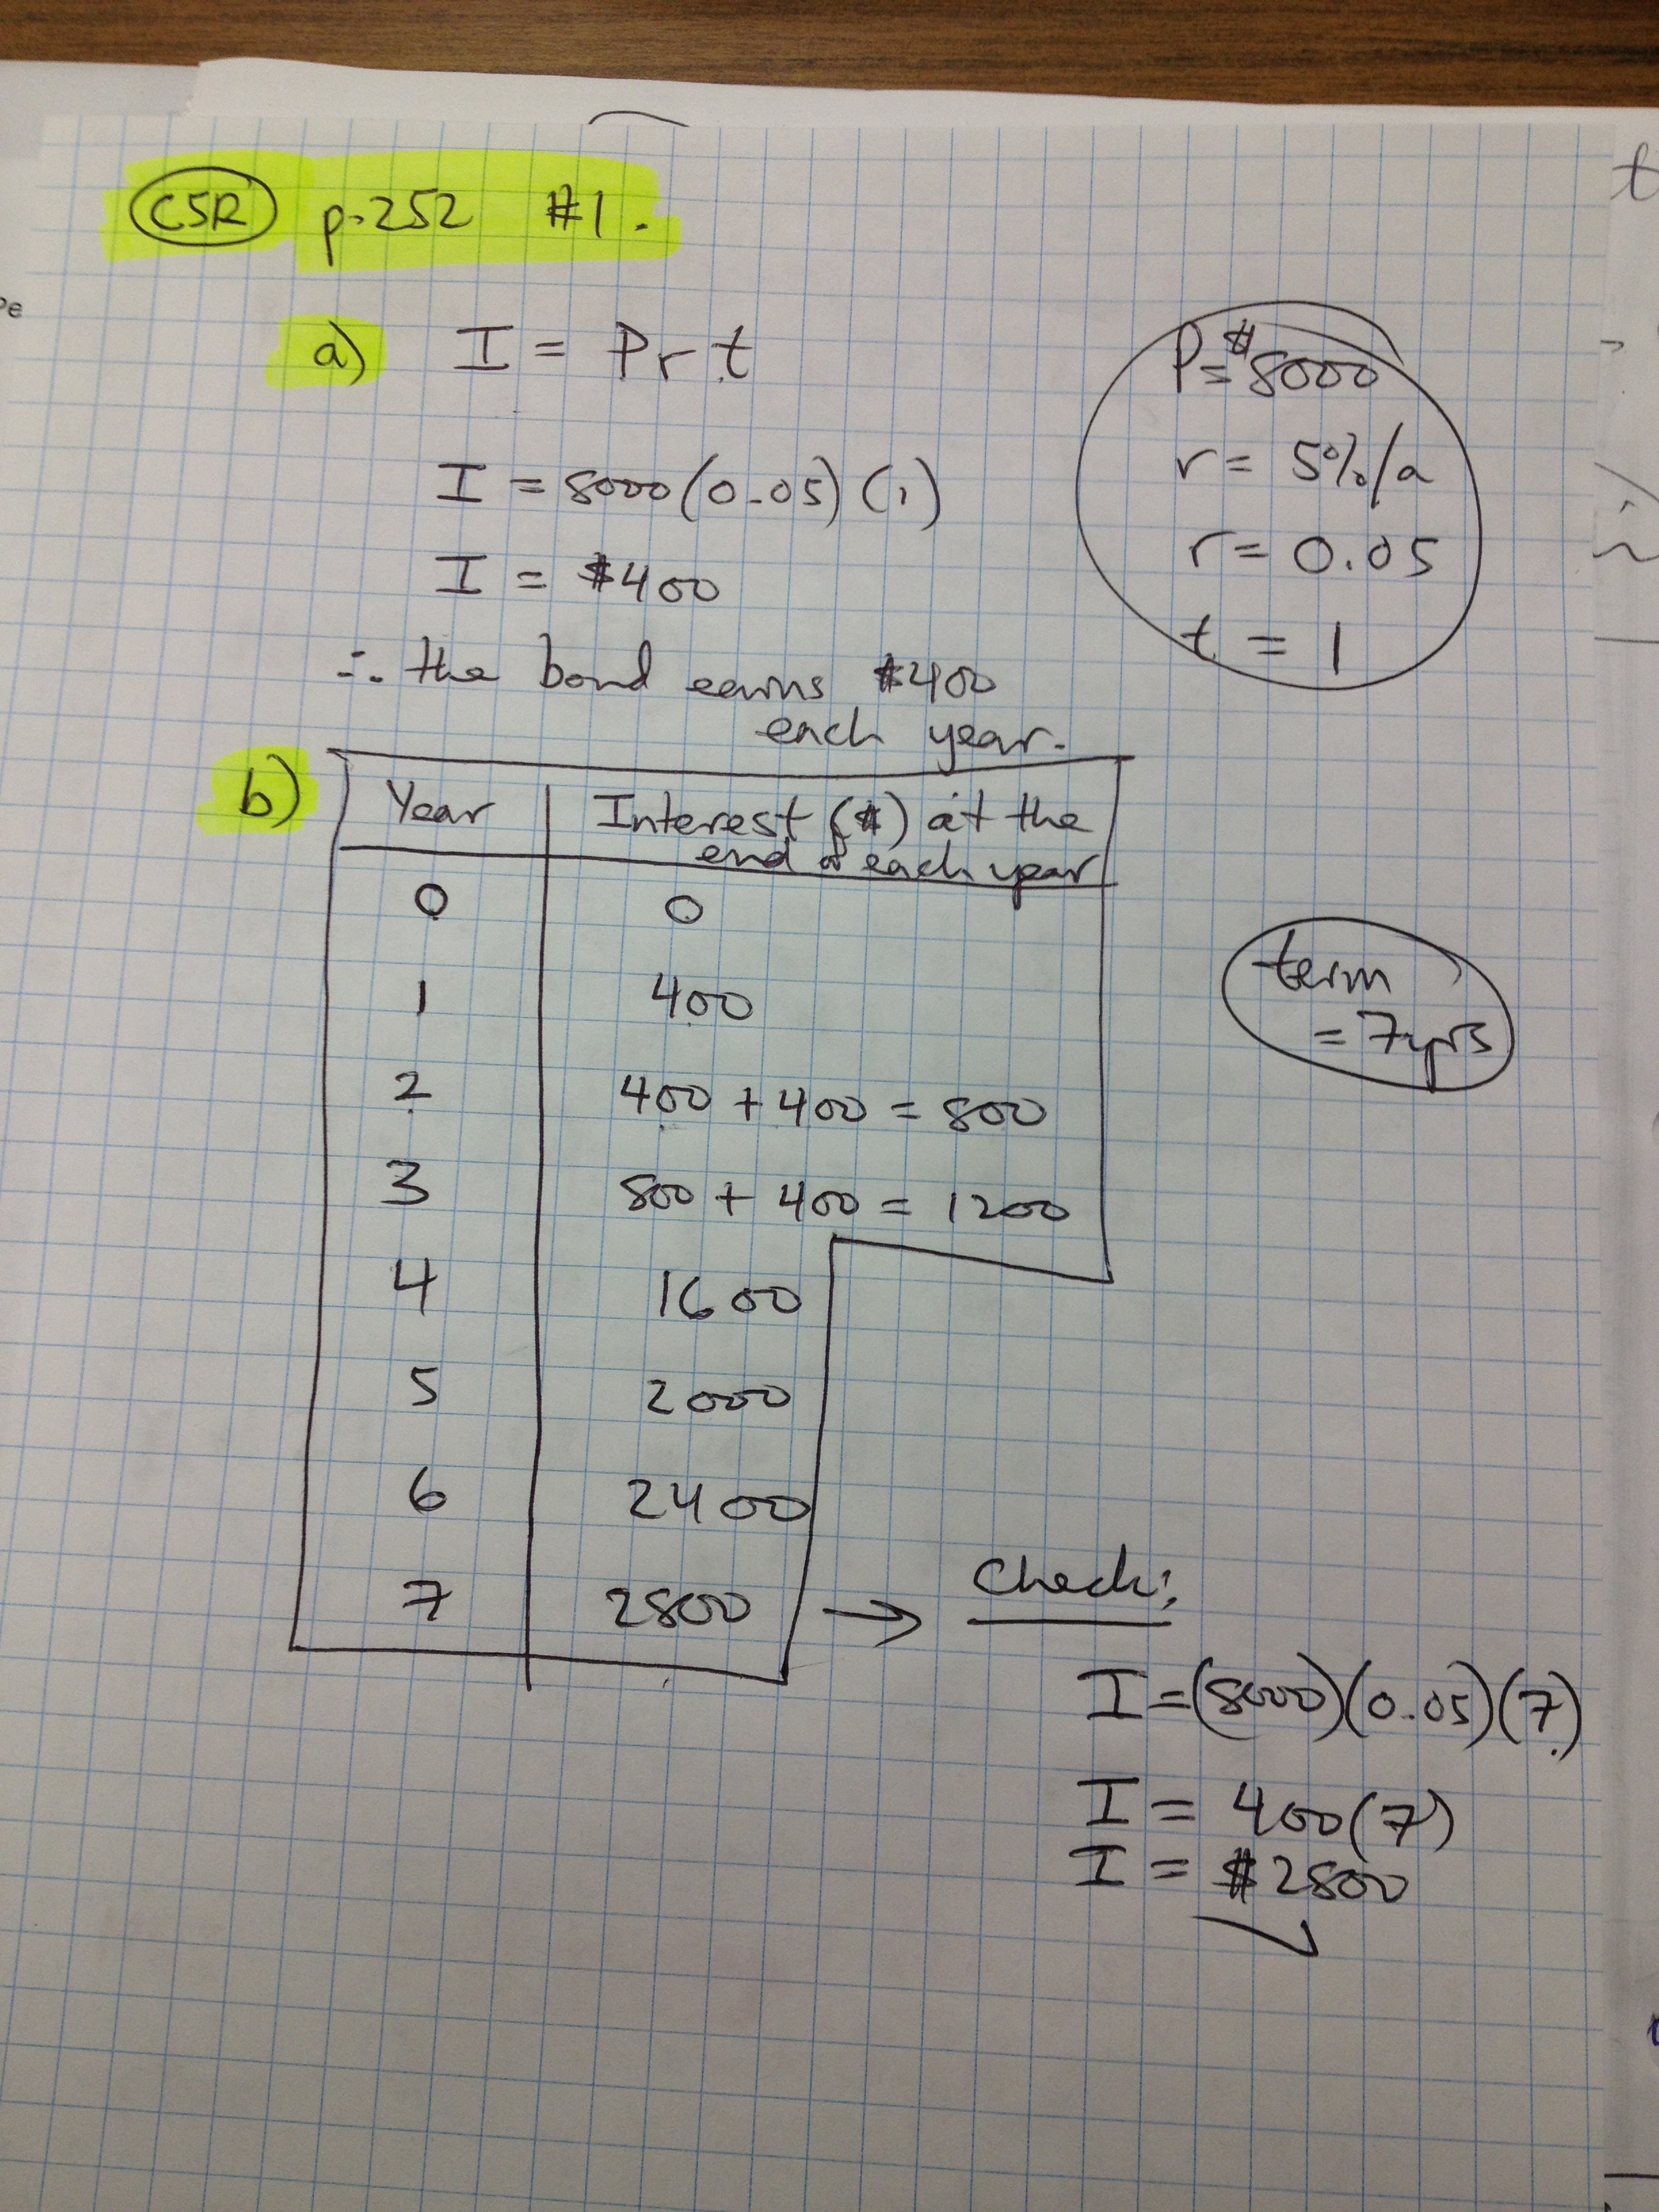 C5R p.252 #1.
a) I = Prt
P = $8000
r = 5%/a
r = 0.05
t = 1
I = 8000(0.05)(1)
I = $400
∴ the bond earns $400
each year.
b) Year Interest ($) at the
end of each year
0 0
1 400
2 400 + 400 = 800
3 800 + 400 = 1200
4 1600
5 2000
6 2400
7 2800 →
term
= 7yrs
Check:
I = (8000)(0.05)(7)
I = 400(7)
I = $2800